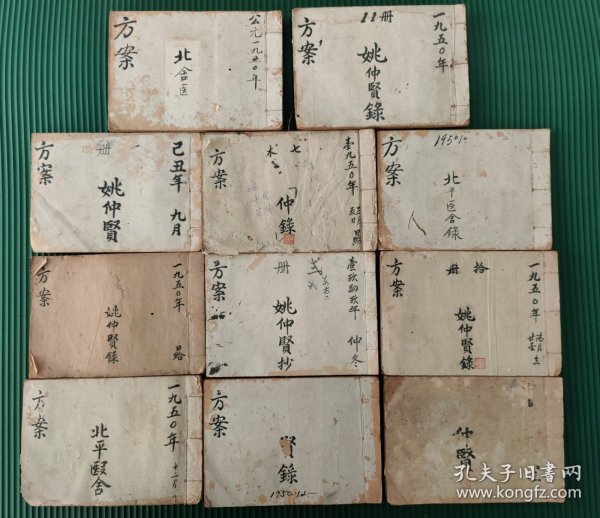 公元一九五〇年
北舍医
方案
一九五〇年
11册
姚仲賢錄
方案
己丑年 九月
册
姚仲賢
方案
壹九五〇年
七
本
仲錄
方案
1950
北平医舍錄
方案
一九五〇年
姚仲賢錄
方案
壹玖肆玖年 仲冬
册
姚仲賢抄
方案
一九五〇年
拾册
姚仲賢錄
方案
一九五〇年
十二月
北平醫舍
方案
賢錄
1950-12-
方案
仲賢
孔夫子旧書网
www.kongfz.com